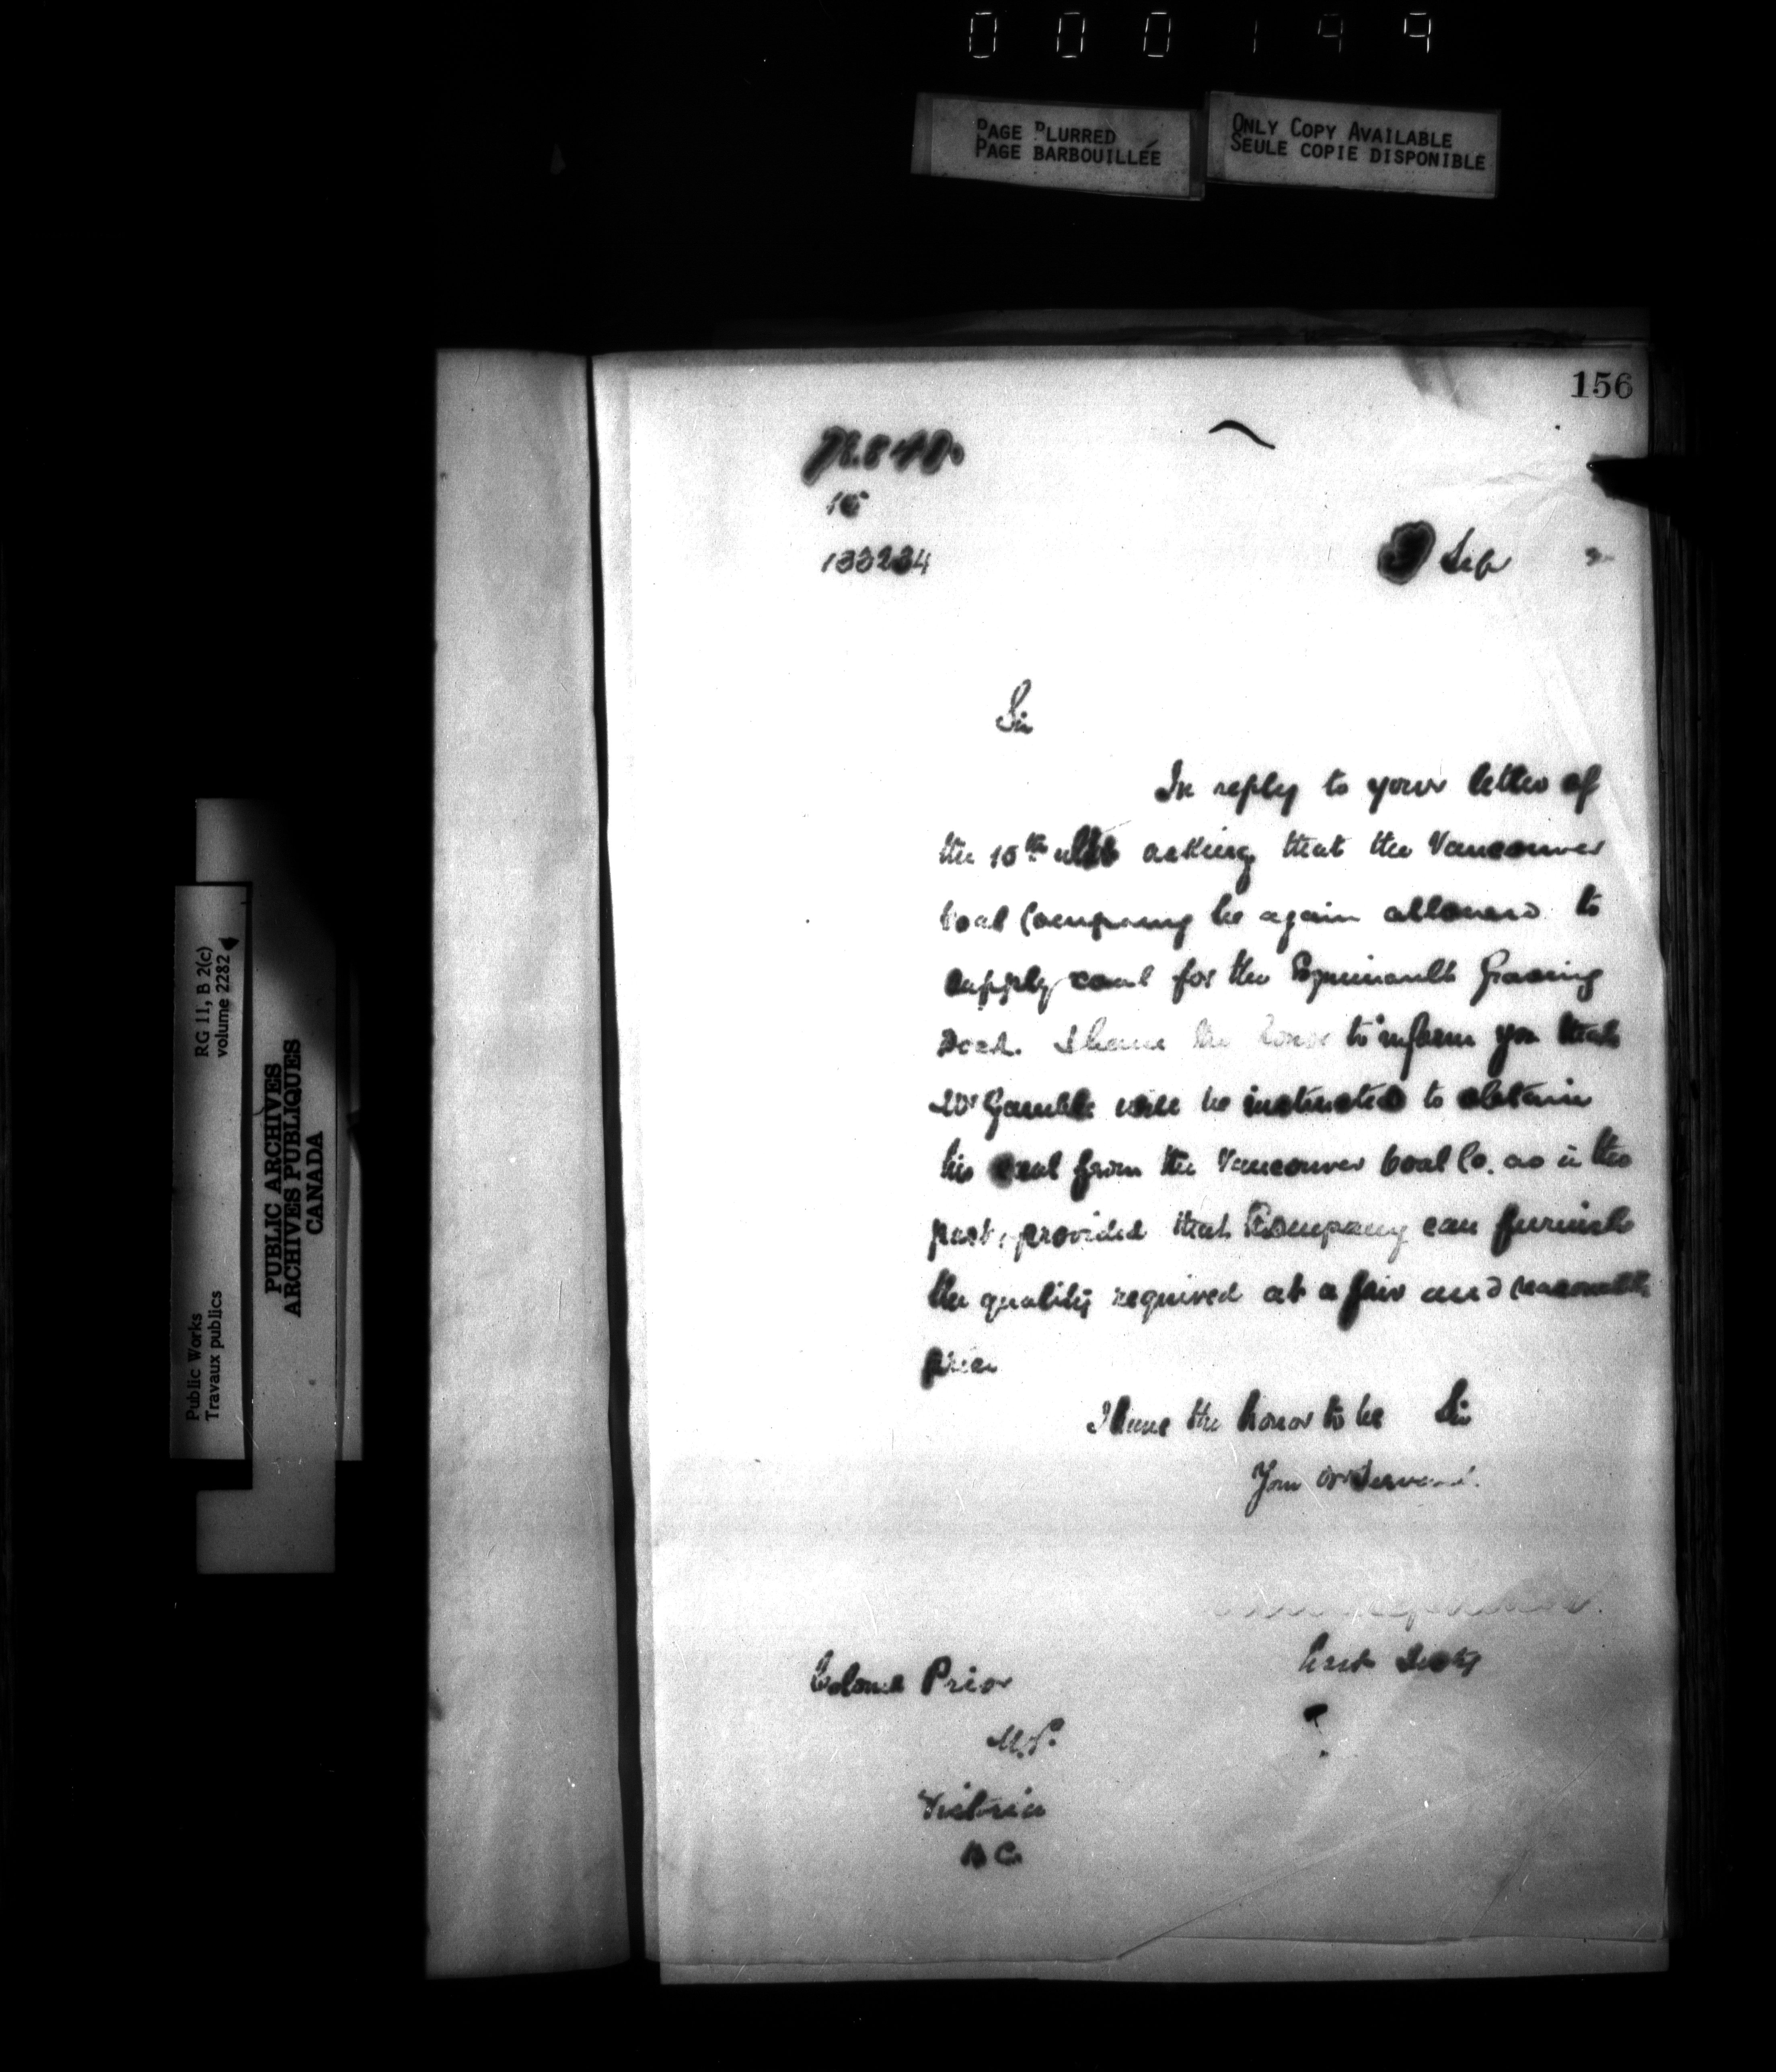 000199
PAGE BLURRED
PAGE BARBOUILLÉE
ONLY COPY AVAILABLE
SEULE COPIE DISPONIBLE
156
15
133234
Sep
Sir
In reply to your letter of
the 15th ulto asking that the Vancouver
Coal Company be again allowed to
supply coal for the Esquimault Graving
Dock. I have the honor to inform you that
Mr Gamble will be instructed to obtain
his coal from the Vancouver Coal Co. as in the
past, provided that Company can furnish
the quality required at a fair and reasonable
price
I have the honor to be Sir
Your Obt Servant.
Colonel Prior
M.P.
Victoria
B C.
RG 11, B 2(c)
volume 2282
Public Works
Travaux publics
PUBLIC ARCHIVES
ARCHIVES PUBLIQUES
CANADA